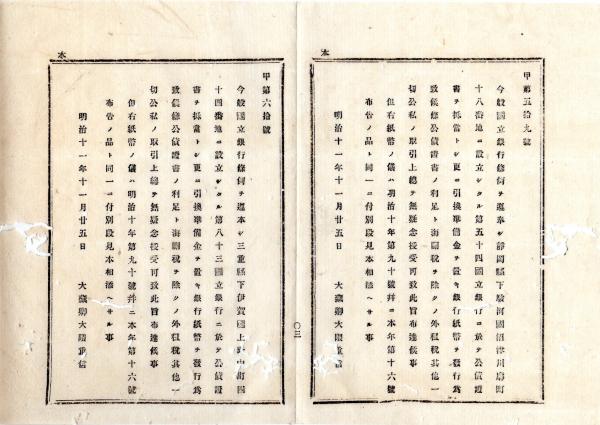 本
甲第五拾九號
今般國立銀行條例ヲ遵奉シ靜岡縣下駿河國沼津川廓町
十八番地ニ設立シタル第五十四國立銀行ニ於テ公債證
書ヲ抵當トシ更ニ引換準備金ヲ置キ銀行紙幣ヲ發行爲
致候條公債證書ノ利足ト海關稅ヲ除クノ外租稅其他一
切公私ノ取引上總テ無疑念授受可致此旨布達候事
但右紙幣ノ儀ハ明治十年第九十號幷ニ本年第十六號
布告ノ品ト同一ニ付別段見本相添ヘサル事
明治十一年十一月廿五日 大藏卿大隈重信
〇三
本
甲第六拾號
今般國立銀行條例ヲ遵奉シ三重縣下伊賀國上野中町四
十四番地ニ設立シタル第八十三國立銀行ニ於テ公債證
書ヲ抵當トシ更ニ引換準備金ヲ置キ銀行紙幣ヲ發行爲
致候條公債證書ノ利足ト海關稅ヲ除クノ外租稅其他一
切公私ノ取引上總テ無疑念授受可致此旨布達候事
但右紙幣ノ儀ハ明治十年第九十號幷ニ本年第十六號
布告ノ品ト同一ニ付別段見本相添ヘサル事
明治十一年十一月廿五日 大藏卿大隈重信